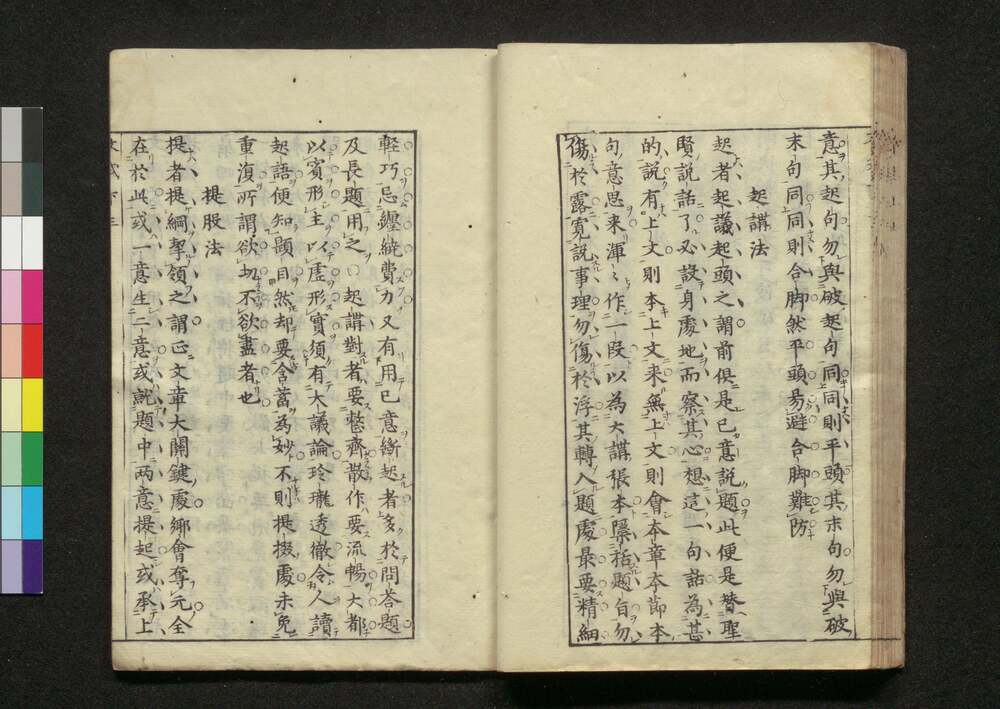 意其起句勿與破起句同同則平頭其末句勿與破
末句同同則合脚然平頭易避合脚難防
起講法
起者起議起頭之謂前俱是己意說題此便是替聖
賢說話了必設身處地而察其心想這一句話為甚
的說有上文則本上文来無上文則會本章本節本
句意思来渾〻作一段以為大講張本隱括題旨勿
傷於露寛說事理勿傷於浮其轉入題處最要精細
輕巧忌纏繞費力又有用己意斷起者多於問答題
及長題用之〇起講對者要整齊散作要流暢大都
以賓形主以虛形實須有大議論玲瓏透徹令人讀
起語便知題目然却要含蓄為妙不則提掇處未免
重復所謂欲切不欲盡者也
提股法
提者提綱挈領之謂正文章大關鍵處鄉會奪元全
在於此或一意生二意或就題中两意提起或承上